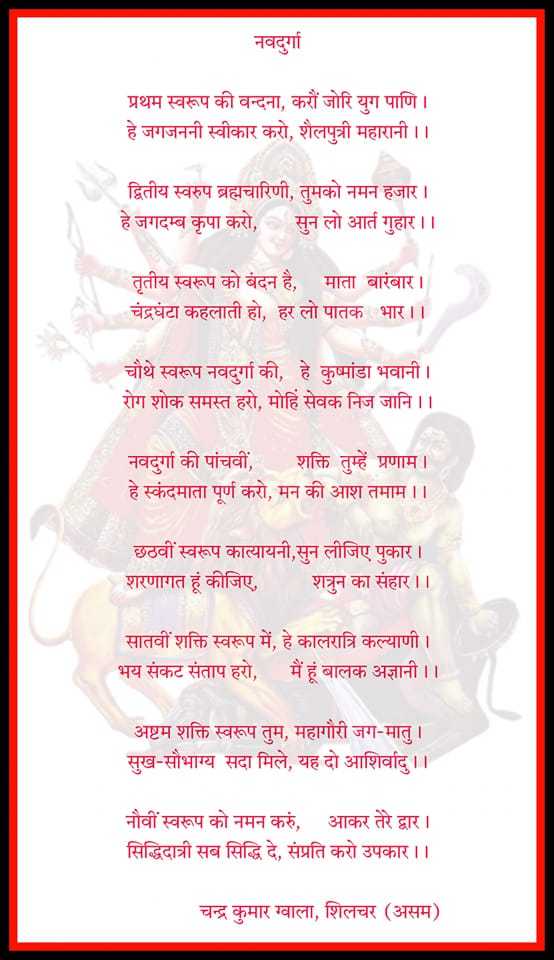 नवदुर्गा
प्रथम स्वरूप की वन्दना, करौं जोरि युग पाणि ।
हे जगजननी स्वीकार करो, शैलपुत्री महारानी ।।
द्वितीय स्वरुप ब्रह्मचारिणी, तुमको नमन हजार ।
हे जगदम्ब कृपा करो, सुन लो आर्त गुहार ।।
तृतीय स्वरूप को बंदन है, माता बारंबार ।
चंद्रघंटा कहलाती हो, हर लो पातक भार ।।
चौथे स्वरूप नवदुर्गा की, हे कुष्मांडा भवानी ।
रोग शोक समस्त हरो, मोहिं सेवक निज जानि ।।
नवदुर्गा की पांचवीं, शक्ति तुम्हें प्रणाम ।
हे स्कंदमाता पूर्ण करो, मन की आश तमाम ।।
छठवीं स्वरूप कात्यायनी,सुन लीजिए पुकार ।
शरणागत हूं कीजिए, शत्रुन का संहार ।।
सातवीं शक्ति स्वरूप में, हे कालरात्रि कल्याणी ।
भय संकट संताप हरो, मैं हूं बालक अज्ञानी ।।
अष्टम शक्ति स्वरूप तुम, महागौरी जग-मातु ।
सुख-सौभाग्य सदा मिले, यह दो आशिर्वादु ।।
नौवीं स्वरूप को नमन करुं, आकर तेरे द्वार ।
सिद्धिदात्री सब सिद्धि दे, संप्रति करो उपकार ।।
चन्द्र कुमार ग्वाला, शिलचर (असम)